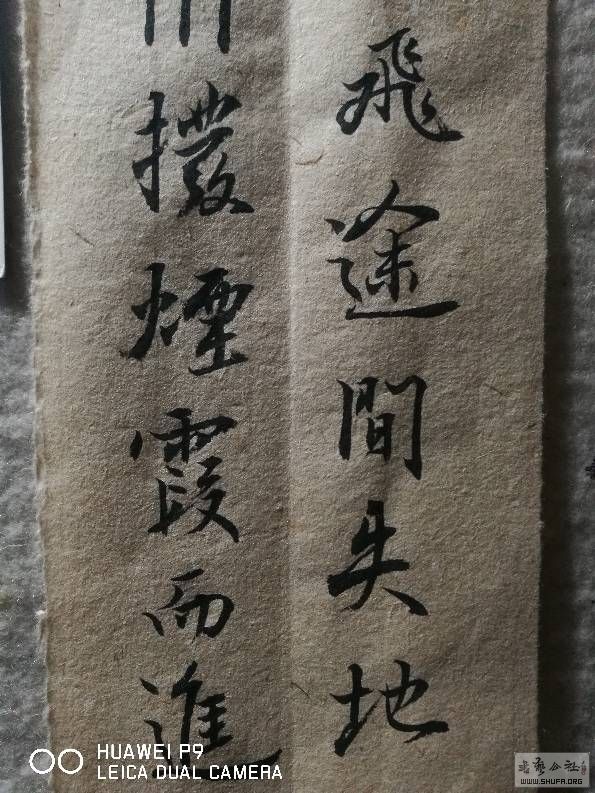 飛途間失地
撥煙霞而進
HUAWEI P9
LEICA DUAL CAMERA
WWW.SHUFA.ORG